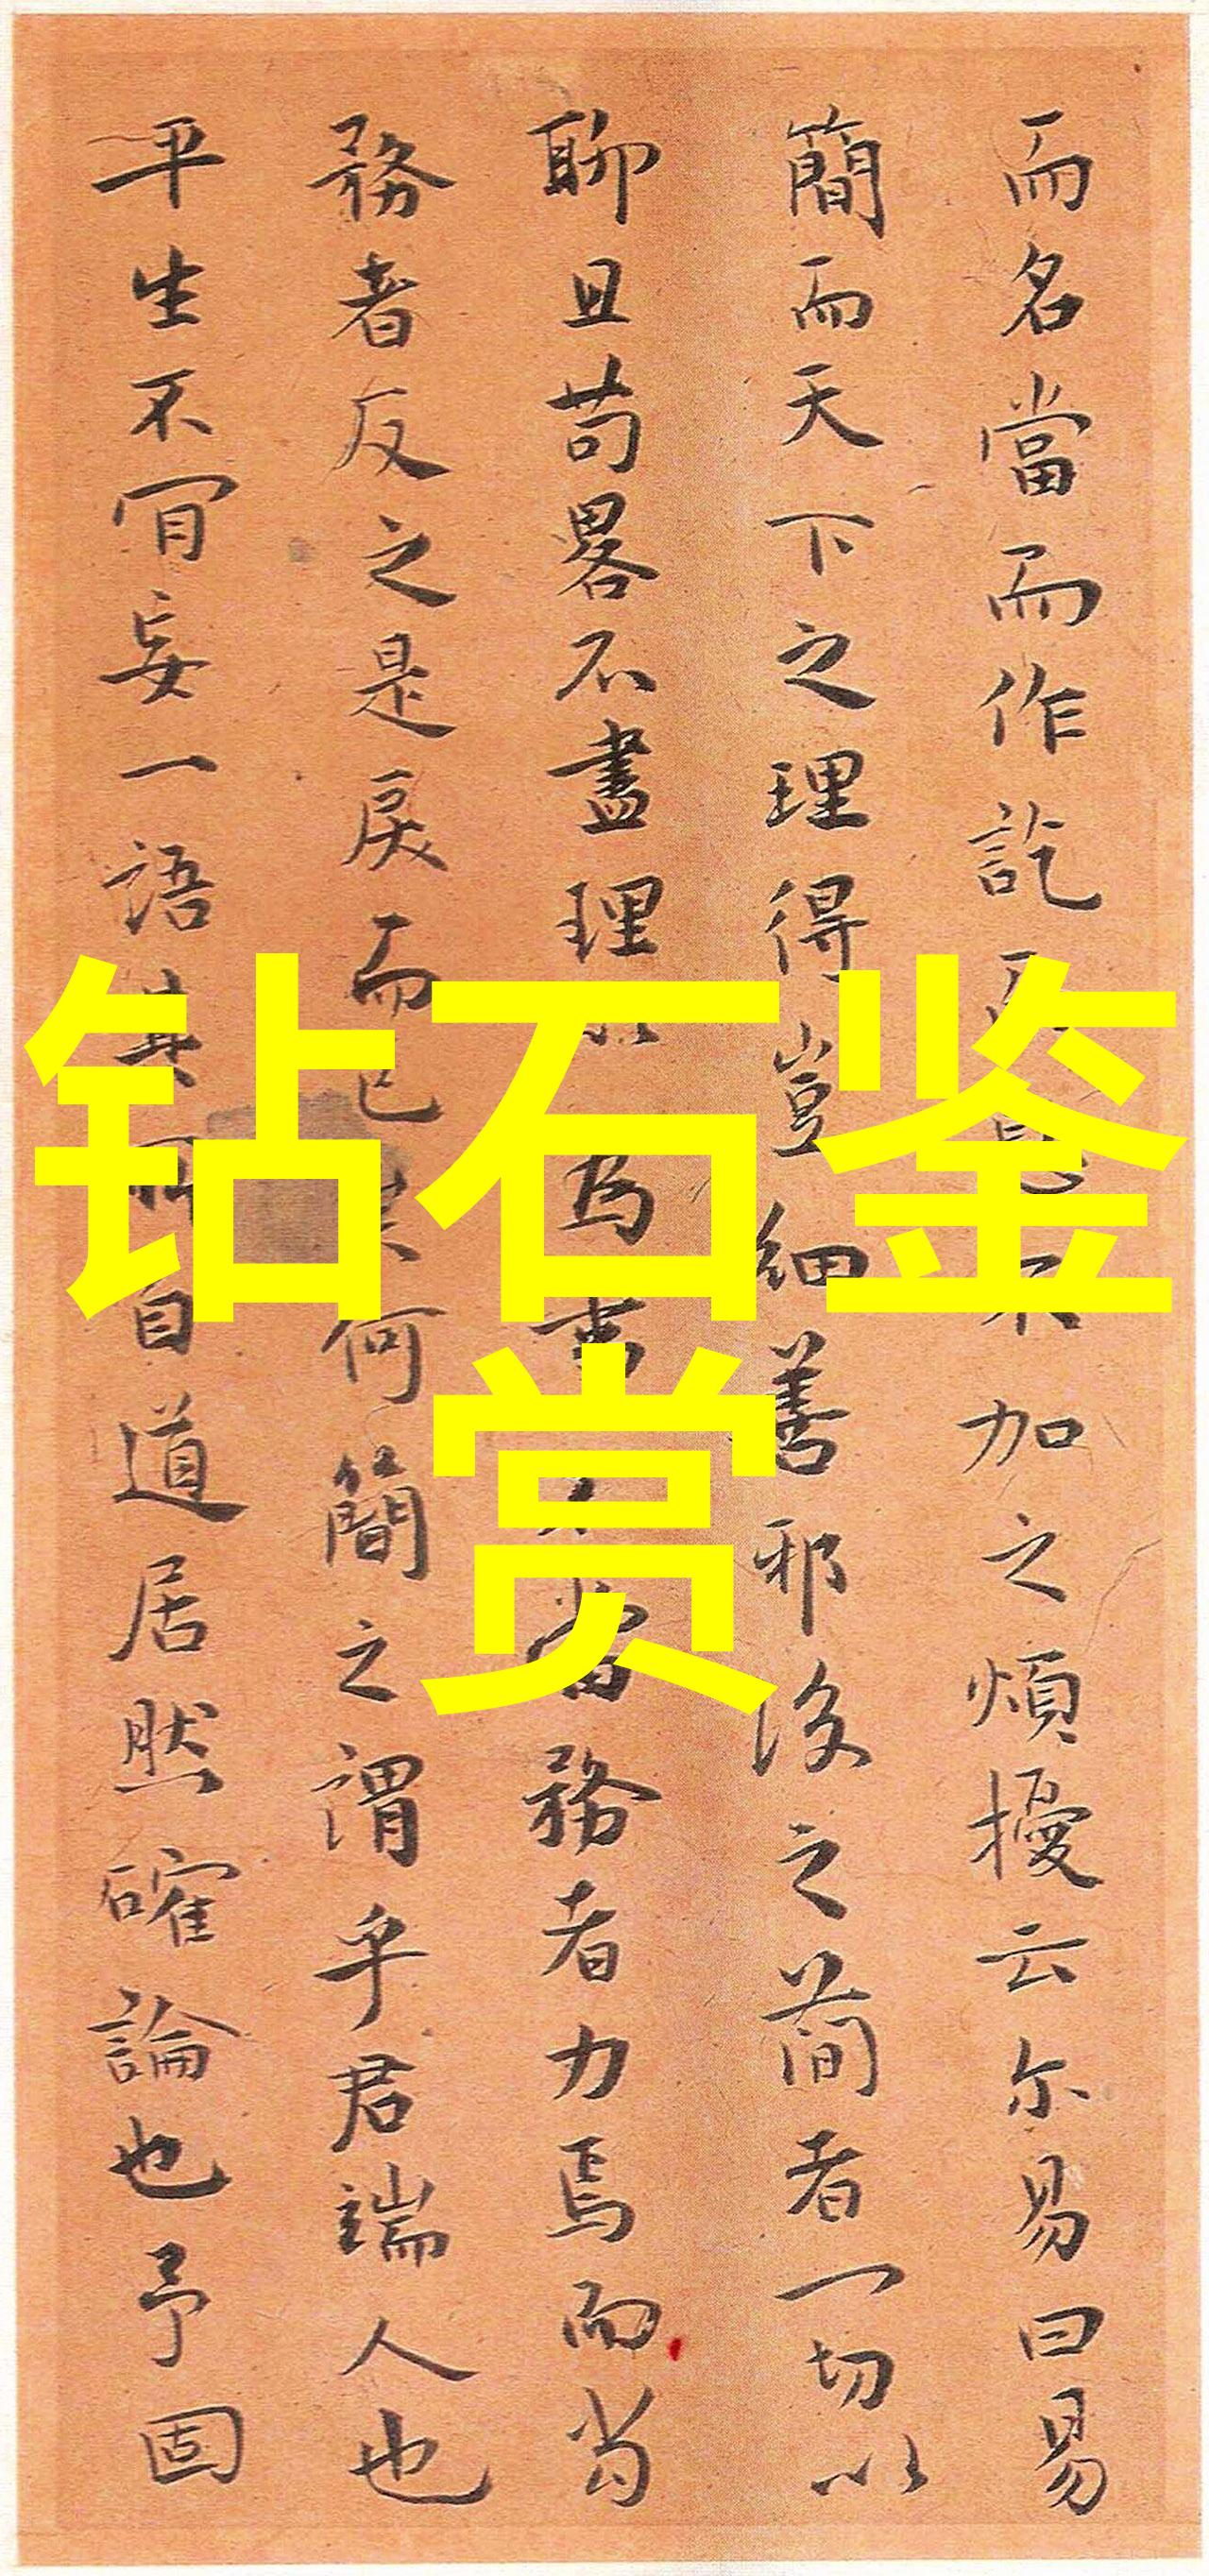 而名當而作訖不加之煩擾云尔易曰易
簡而天下之理得豈細善邪後之简者一切以
聊且苟畧不盡理以為書當務者力焉而尚
務者反之是戾而已矣何簡之謂乎君端人也
平生不肎妄一語其所自道居然確論也予固
钻石鉴
赏